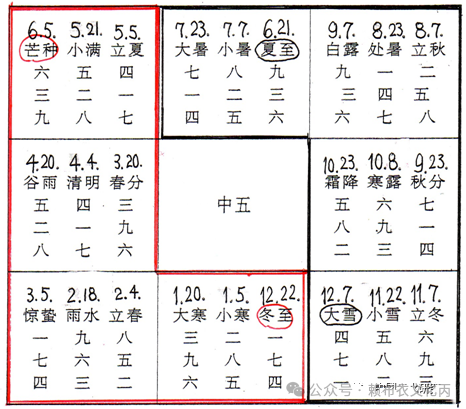 6.5. 5.21. 5.5.
芒种 小满 立夏
六 五 四
三 二 一
九 八 七
7.23. 7.7. 6.21.
大暑 小暑 夏至
七 八 九
一 二 三
四 五 六
9.7. 8.23. 8.7.
白露 处暑 立秋
九 一 二
三 四 五
六 七 八
4.20. 4.4. 3.20.
谷雨 清明 春分
五 四 三
二 一 九
八 七 六
中五
10.23. 10.8. 9.23.
霜降 寒露 秋分
五 六 七
八 九 一
二 三 四
3.5. 2.18. 2.4.
惊蛰 雨水 立春
一 九 八
七 六 五
四 三 二
1.20. 1.5. 12.22.
大寒 小寒 冬至
三 二 一
九 八 七
六 五 四
12.7. 11.22. 11.7.
大雪 小雪 立冬
四 五 六
七 八 九
公众号 · 赖布衣